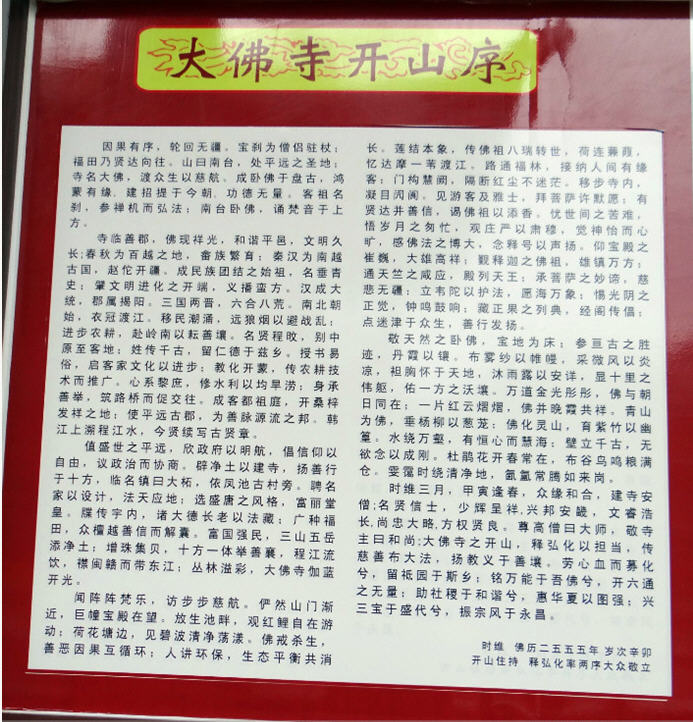 大佛寺开山序
因果有序，轮回无疆。宝刹为僧侣驻杖；
福田乃贤达向往。山曰南台，处平远之圣地；
寺名大佛，渡众生以慈航。成卧佛于盘古，鸿
蒙有缘，建招提于今朝，功德无量。客祖名
刹，参禅机而弘法；南台卧佛，诵梵音于上
方。
寺临善郡，佛现祥光，和谐平邑，文明久
长;春秋为百越之地，畲族繁育；秦汉为南越
古国，赵佗开疆。成民族团结之始祖，名垂青
史；肇文明进化之开端，义播蛮方。汉成大
统，郡属揭阳。三国两晋，六合八荒。南北朝
始，衣冠渡江。移民潮涌，远狼烟以避战乱；
进步农耕，赴岭南以耘善壤。名贤程旼，别中
原至客地；姓传千古，留仁德于兹乡。授书易
俗，启客家文化以进步；教化开蒙，传农耕技
术而推广。心系黎庶，修水利以均旱涝；身承
善举，筑路桥而促交往。成客都祖庭，开桑梓
发祥之地；使平远古郡，为善脉源流之邦。韩
江上溯程江水，今贤续写古贤章。
值盛世之平远，欣政府以明航，倡信仰以
自由，议政治而协商。辟净土以建寺，扬善行
于十方，临名镇曰大柘，依凤池古村旁。聘名
家以设计，法天应地；选盛唐之风格，富丽堂
皇。牒传宇内，诸大德长老以法藏；广种福
田，众檀越善信而解囊。富国强民，三山五岳
添净土；增珠集贝，十方一体举善襄，程江流
饮，襟闽赣而带东江；丛林溢彩，大佛寺伽蓝
开光。
闻阵阵梵乐，访步步慈航。俨然山门渐
近，巨幢宝殿在望。放生池畔，观红鲤自在游
动；荷花塘边，见碧波清净荡漾。佛戒杀生，
善恶因果互循环；人讲环保，生态平衡共消
长。莲结本象，传佛祖八瑞转世，荷连蒹葭，
忆达摩一苇渡江。路通福林，接纳人间有缘
客；门构慧网，隔断红尘不迷茫。移步寺内，
凝目闪阔。见游客及雅士，拜菩萨许默愿；有
贤达并善信，谒佛祖以添香。忧世间之苦难，
悟岁月之匆忙，观庄严以肃穆，觉神怡而心
旷，感佛法之博大，念释号以声扬。仰宝殿之
崔巍，大雄高祥；觐释迦之佛祖，雄镇万方；
通天竺之咸应，殿列天王；承菩萨之妙谛，慈
悲无疆；立韦陀以护法，愿海万象；惕光阴之
正觉，钟鸣鼓响；藏正果之列典，经阁传倡；
点迷津于众生，善行发扬。
敬天然之卧佛，宝地为床；参亘古之胜
迹，丹霞以镶。布雾纱以帷幔，采微风以炎
凉，袒胸怀于天地，沐雨露以安详，显十里之
伟躯，佑一方之沃壤。万道金光彤彤，佛与朝
日同在；一片红云熠熠，佛并晚霞共祥。青山
为佛，垂杨柳以葱茏；佛化灵山，育紫竹以幽
篁。水绕万壑，有恒心而慧海；壁立千古，无
欲念以成刚。杜鹃花开春常在，布谷鸟鸣粮满
仓。雯霭时绕清净地，氤氲常腾如来岗。
时维三月，甲寅逢春，众缘和合，建寺安
僧;名贤信士，少辉呈祥,兴邦安畿，文睿浩
长,尚忠大略,方权贤良。尊高僧曰大师，敬寺
主曰和尚;大佛寺之开山，释弘化以担当，传
慈善布大法，扬教义于善壤。劳心血而募化
兮，留祗园于斯乡；铭万能于吾佛兮，开六通
之无量；助社稷于和谐兮，惠华夏以图强；兴
三宝于盛代兮，振宗风于永昌。
时维 佛历二五五五年 岁次辛卯
开山住持 释弘化率两序大众敬立